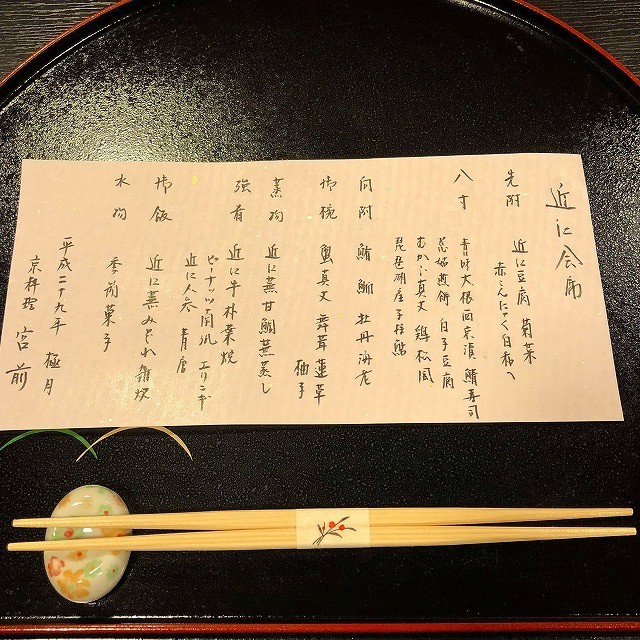 近江会席
先附 近江豆腐 菊菜
赤こんにゃく白和へ
八寸 青味大根西京漬 鯖寿司
慈姑煎餅 白子豆腐
むかご真丈 鶏松風
琵琶湖産子持鮎
向附 鮪 鰤 牡丹海老
御椀 蟹真丈 舞茸 蓮草
柚子
蒸物 近江蕪甘鯛蕪蒸し
強肴 近江牛朴葉焼
ピーナッツ南瓜 エリンギ
近江人参 青唐
御飯 近江蕪みぞれ雑炊
水物 季節菓子
平成二十九年 極月
京料理 宮前